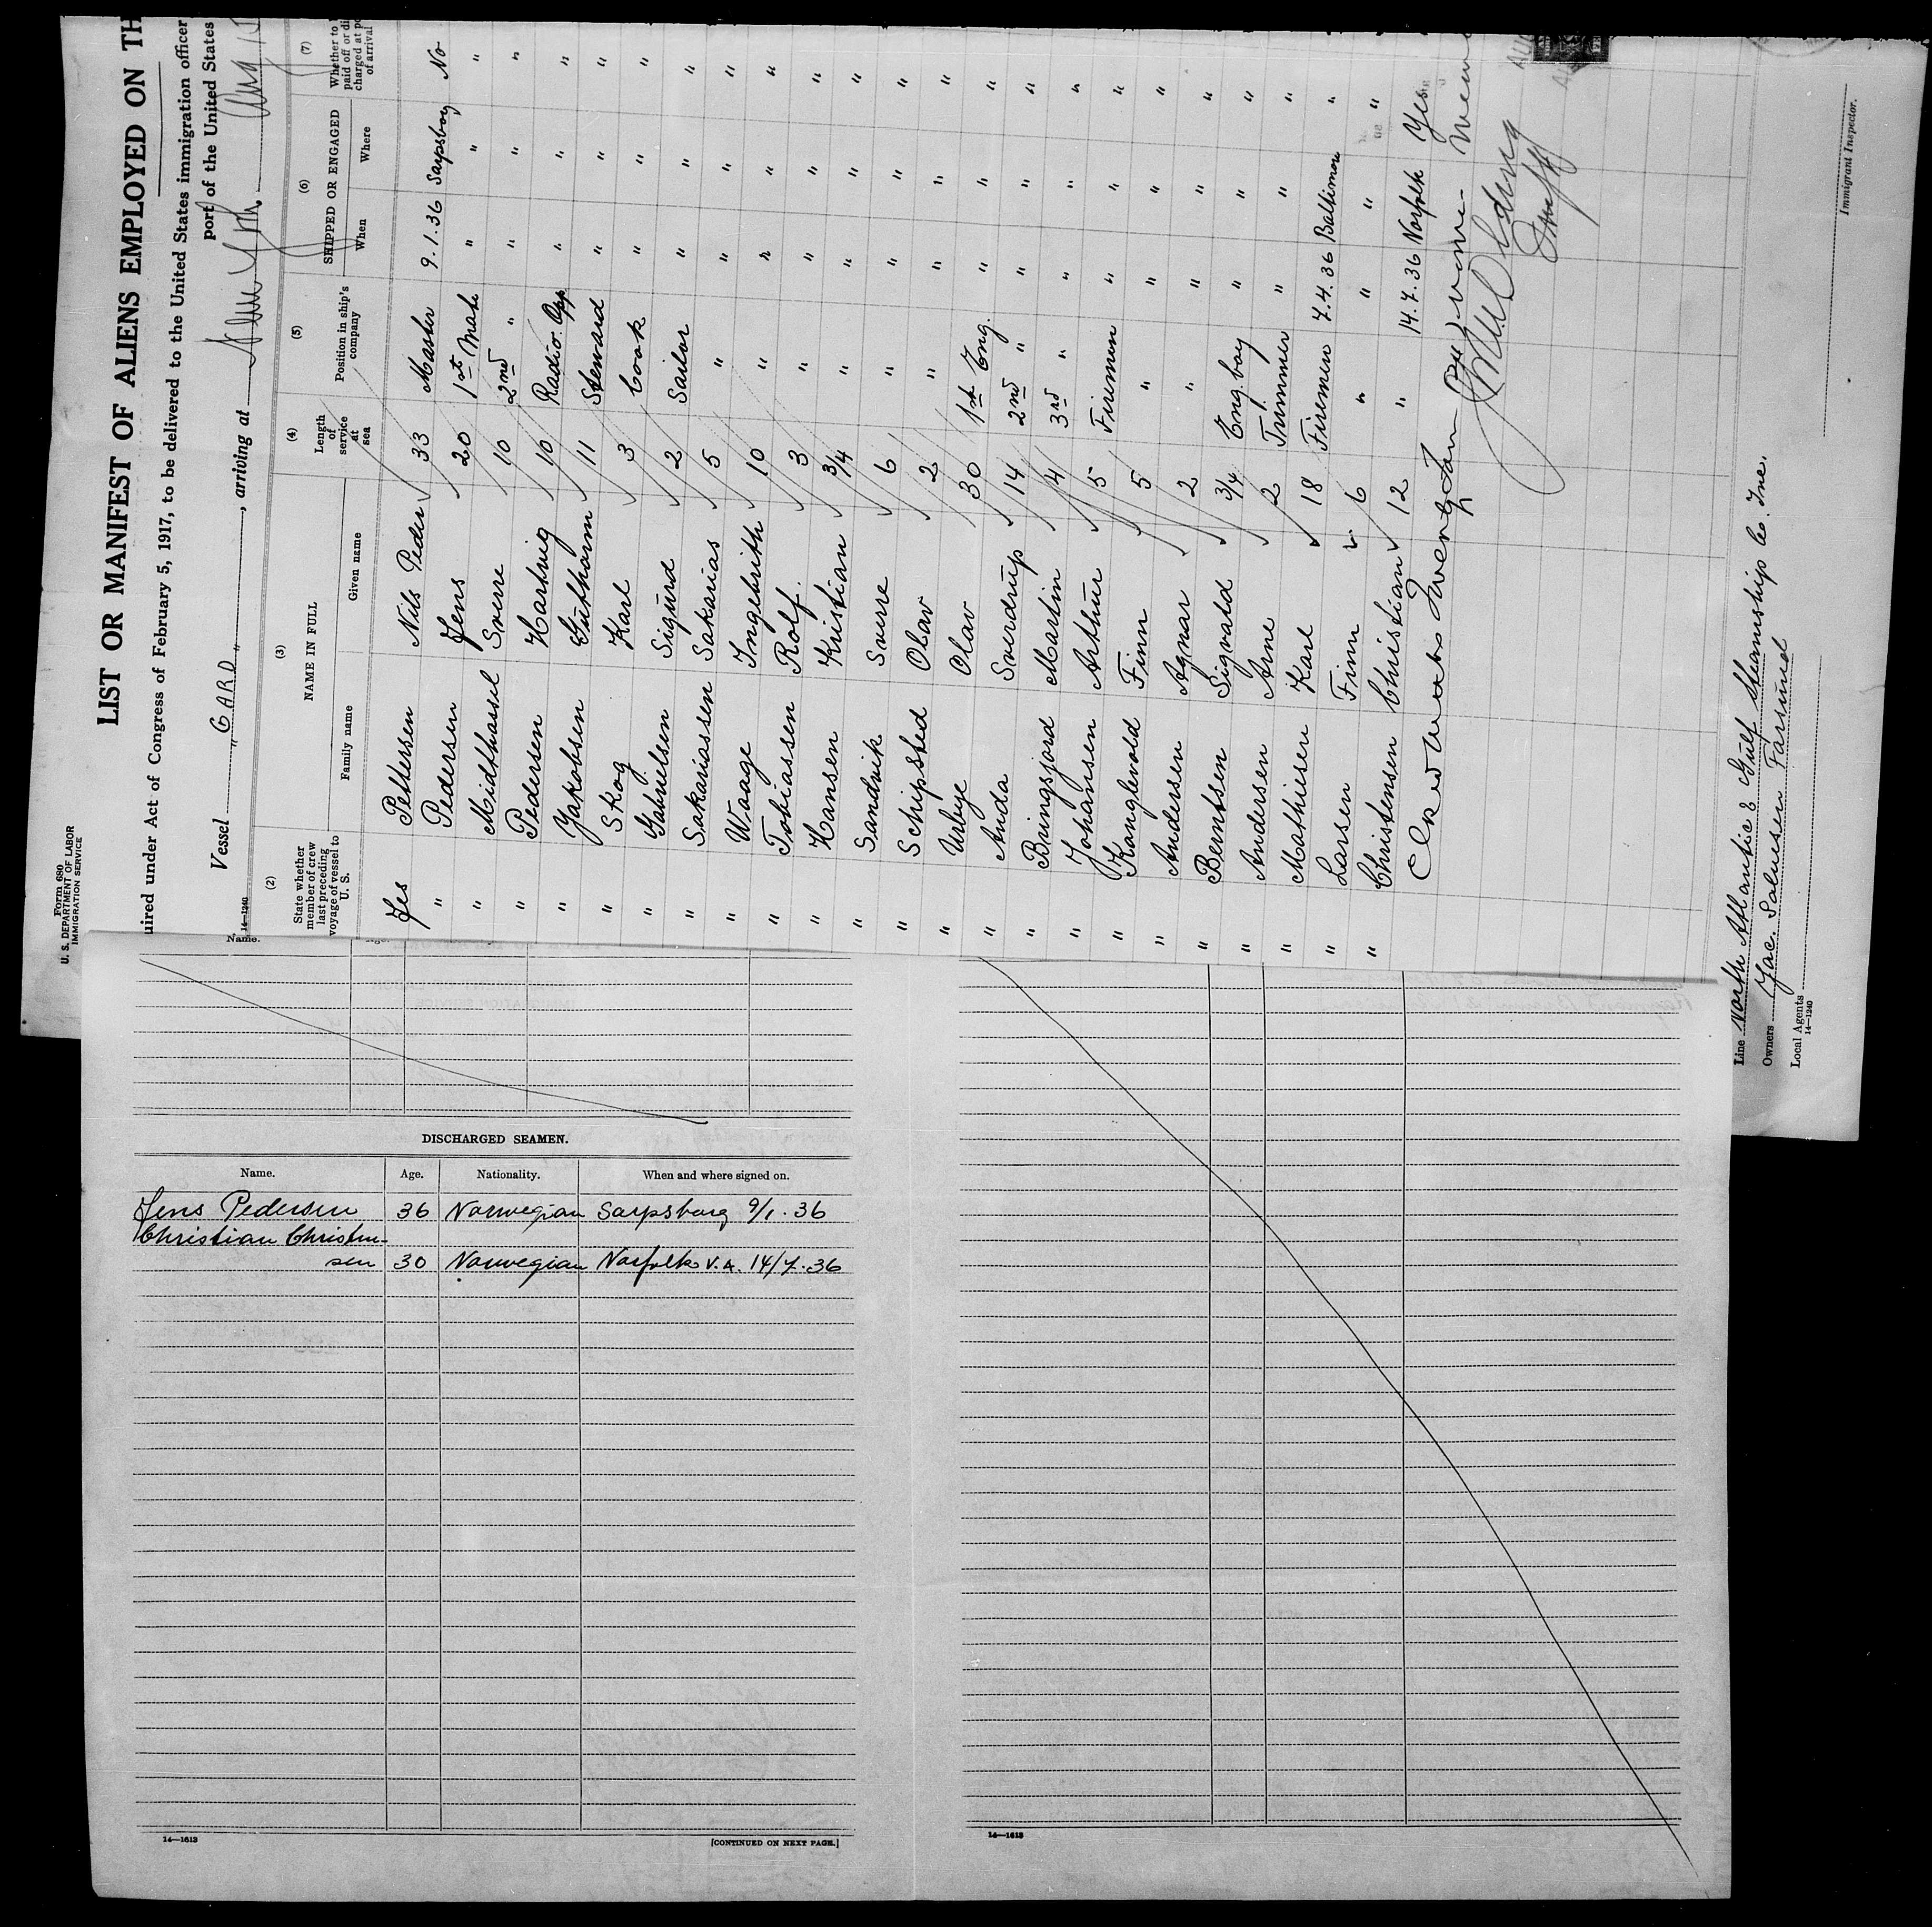 Form 680
U. S. DEPARTMENT OF LABOR
IMMIGRATION SERVICE
LIST OR MANIFEST OF ALIENS EMPLOYED ON TH
uired under Act of Congress of February 5, 1917, to be delivered to the United States immigration officer
port of the United States
Vessel "GARD", arriving at New York Aug
14—1240
(2) (3) (4) (5) (6) (7)
State whether member of crew last preceding voyage of vessel to U. S.
NAME IN FULL
Family name Given name
Length of service at sea
Position in ship's company
SHIPPED OR ENGAGED
When Where
Whether to paid off or di charged at po of arrival
Yes Pettersen Nils Peder 33 Master 9.1.36 Sarpsborg No
" Pedersen Jens 20 1st Mate " " "
" Midthassel Sverre 10 2nd " " " "
" Pedersen Hartvig 10 Radio. Opp " " "
" Jakobsen Guthorm 11 Steward " " "
" Skog Karl 3 Cook " " "
" Gabrielsen Sigurd 2 Sailor " " "
" Sakariassen Sakarias 5 " " " "
" Waage Ingebrith 10 " " " "
" Tobiassen Rolf. 3 " " " "
" Hansen Kristian 3/4 " " " "
" Sandvik Sverre 6 " " " "
" Schipsted Olav 2 " " " "
" Urbye Olav 30 1st Eng. " " "
" Anda Sverdrup 14 2nd " " " "
" Bringsjord Martin 4 3rd " " " "
" Johansen Arthur 5 Firemen " " "
" Kanglevold Finn 5 " " " "
" Andersen Agnar 2 " " " "
" Berntsen Sigvald 3/4 Eng. boy " " "
" Andersen Arne 2 Trimmer " " "
" Mathiesen Karl 18 Firemen 7.4.36 Baltimore "
" Larsen Finn 6 " " " "
" Christensen Christian 12 " 14.7.36 Norfolk Yes
Line North Atlantic & Gulf Steamship Co. Inc.
Owners Jac. Salvesen Farsund
Local Agents
14—1240
Immigrant Inspector.
Name.
DISCHARGED SEAMEN.
Name. Age. Nationality. When and where signed on.
Jens Pedersen 36 Norwegian Sarpsborg 9/1.36
Christian Christen-
sen 30 Norwegian Norfolk V.A. 14/7.36
14—1613
[CONTINUED ON NEXT PAGE.]
14—1613